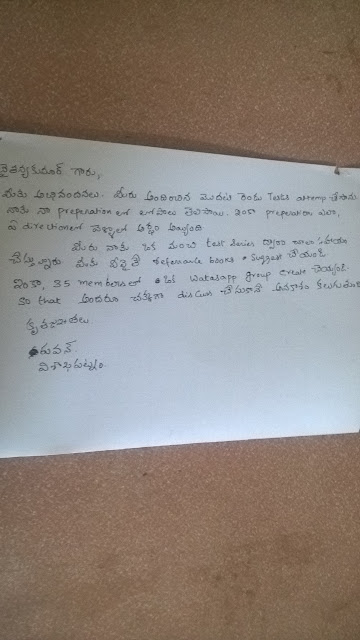 చైతన్యకుమార్ గారు,
మీకు అభినందనలు. మీరు అందించిన మొదటి రెండు Tests attemp చేశాను
నాకు నా preparation లో లోపాలు తెలిసాయి. ఇంకా preparation ఎలా,
ఏ direction లో వెళ్ళాలో అర్థం అయ్యింది
మీరు నాకు ఒక మంచి test series ద్వారా చాలా సహాయం
చేస్తున్నారు మీకు వీలైతే referance books suggest చేయండి
ఇంకా, 35 members తో ఒక Watasapp group create చేయండి
so that అందరూ చక్కగా discus చేసుకొనే అవకాశం కలుగుతుంది
కృతజ్ఞతలు.
పవన్.
విశాఖపట్నం.